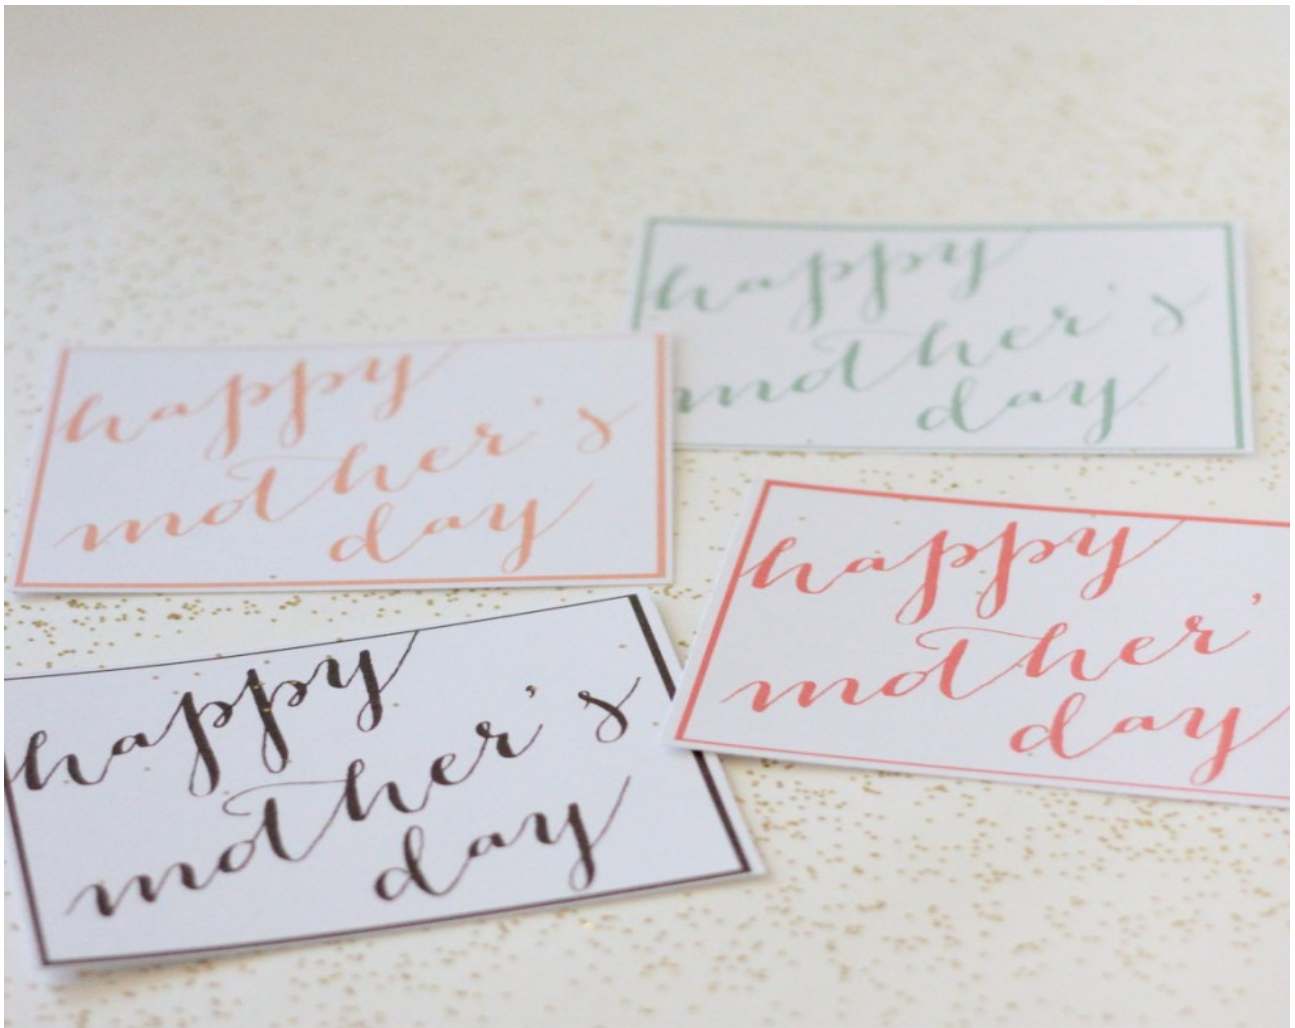 happy
mother's
day
happy
mother's
day
happy
mother'
day
happy
mother's
day